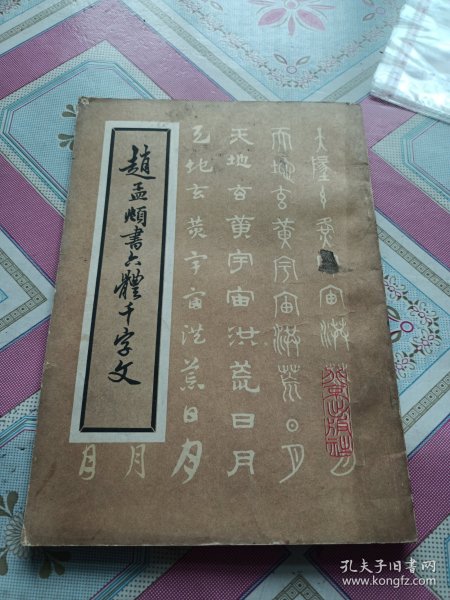 趙孟頫書六體千字文
天地玄黃宇宙洪荒日月
天地玄黃宇宙洪荒日月
天地玄黃宇宙洪荒日月
月
月
孔夫子旧书网
www.kongfz.com